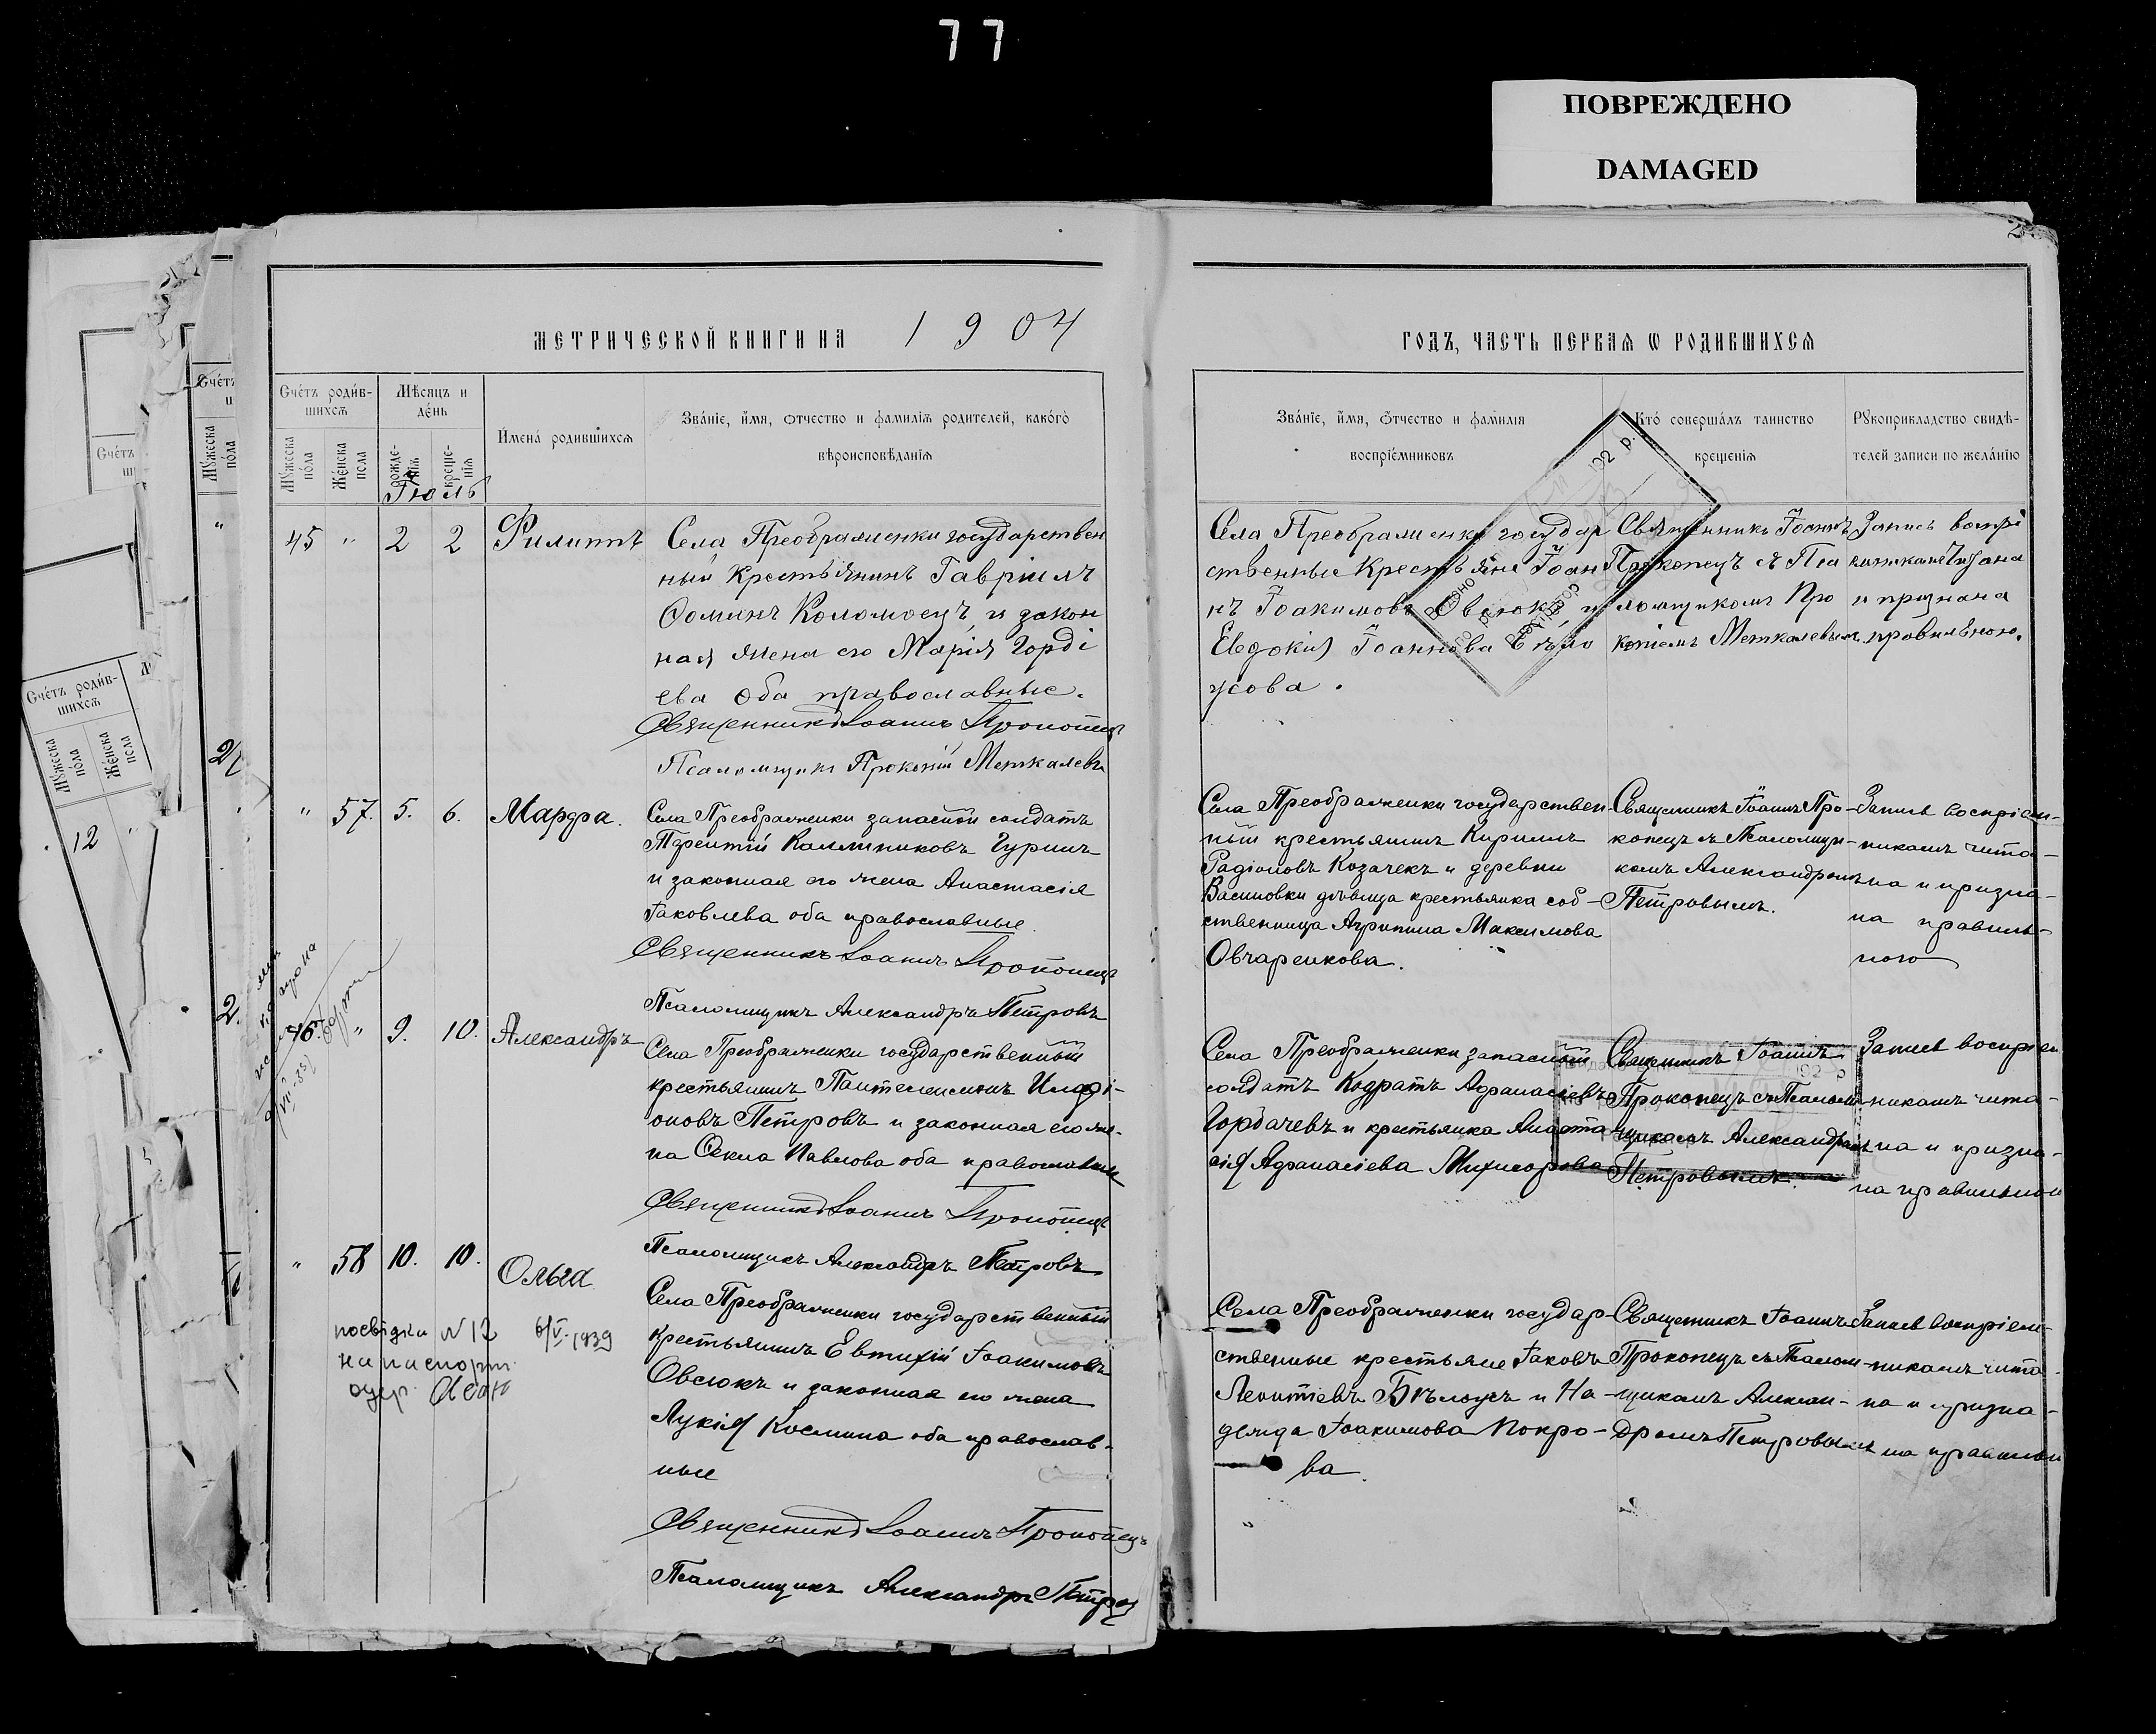 77
ПОВРЕЖДЕНО
DAMAGED
МЕТРИЧЕСКОЙ КНИГИ НА 1904
ГОДЪ, ЧАСТЬ ПЕРВАЯ Ѡ РОДИВШИХСЯ
Счетъ родив-
шихся
Мужеска пола
Женска пола
Мѣсяцъ и
день
рожде-
нія
креще-
нія
Имена родившихся
Званіе, имя, отчество и фамилія родителей, какого
вѣроисповѣданія
Званіе, имя, отчество и фамилія
воспріемниковъ
Кто совершалъ таинство
крещенія
Рукоприкладство свидѣ-
телей записи по желанію
Іюль
45 " 2 2 Филиппъ
Села Преображенки государствен
ный крестьянинъ Гавріилъ
Фоминъ Коломоецъ, и закон
ная жена его Марія Горді
ева оба православные.
Священникъ Іоаннъ Прокопецъ
Псаломщикъ Прокопій Меткалевъ
Села Преображенки государ
ственные Крестьяне Іоан
нъ Іоакимовъ Овсюкъ, и
Евдокія Іоаннова Бѣло
усова.
Священникъ Іоаннъ
Прокопецъ съ Пса
ломщикомъ Про
копіемъ Меткалевымъ
Запись воспрі
емникамъ читана
и признана
правильною.
" 57. 5. 6. Марфа.
Села Преображенки запасной солдатъ
Терентій Каллиниковъ Гуринъ
и законная его жена Анастасія
Іаковлева оба православные.
Священникъ Іоаннъ Прокопецъ
Псаломщикъ Александръ Петровъ
Села Преображенки государствен-
ный крестьянинъ Кириллъ
Радіоновъ Козачекъ и деревни
Васиновки дѣвица крестьянка соб-
ственница Агрипина Максимова
Овчаренкова.
Священникъ Іоаннъ Про-
копецъ съ Псаломщи-
комъ Александромъ
Петровымъ.
Запись воспріем-
никамъ чита-
на и призна-
на правиль-
ною
46. " 9. 10. Александръ
Села Преображенки государственный
крестьянинъ Пантелеимонъ Иларі-
оновъ Петровъ и законная его же-
на Фекла Павлова оба православные
Священникъ Іоаннъ Прокопецъ
Псаломщикъ Александръ Петровъ
Села Преображенки запасный
солдатъ Кодратъ Афанасіевъ
Горбачевъ и крестьянка Анаста
сія Афанасіева
Священникъ Іоаннъ
Прокопецъ съ Псалом
щикомъ Александромъ
Петровымъ.
Запись воспріем
никамъ чита-
на и призна-
на правильной
" 58 10. 10. Ольга
посвідки N 12 6/V-1939
на паспорт
Села Преображенки государственный
крестьянинъ Евтихій Іоакимовъ
Овсюкъ и законная его жена
Лукія Космина оба православ-
ные
Священникъ Іоаннъ Прокопецъ
Псаломщикъ Александръ Петровъ
Села Преображенки государ-
ственные крестьяне Іаковъ
Леонтіевъ Бѣлоусъ и На-
дежда Іоакимова Покро-
ва.
Священникъ Іоаннъ
Прокопецъ съ Псалом-
щикомъ Алексан-
дромъ Петровымъ
Запись воспріем-
никамъ чита-
на и призна-
на правильной